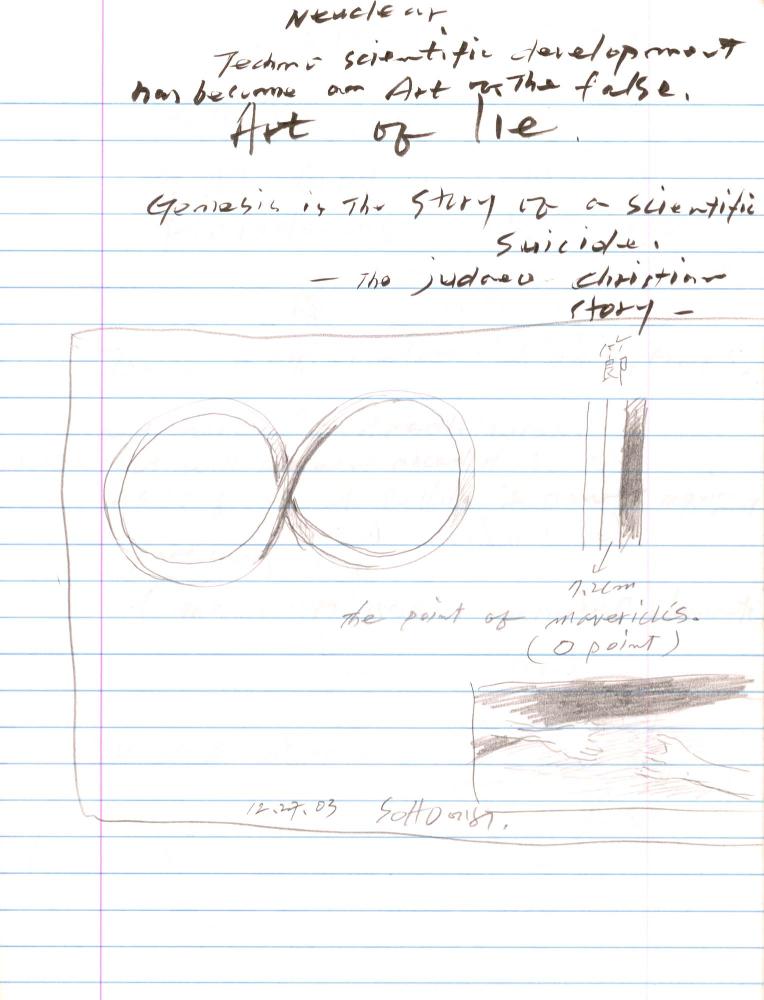 Neuclear
Techno scientific development
has become an Art of The false.
Art of lie.
Genesis is The Story of a scientific
Suicide.
— The judaeo christian
story —
節
the point of mavericks.
(0 point)
12.27.03